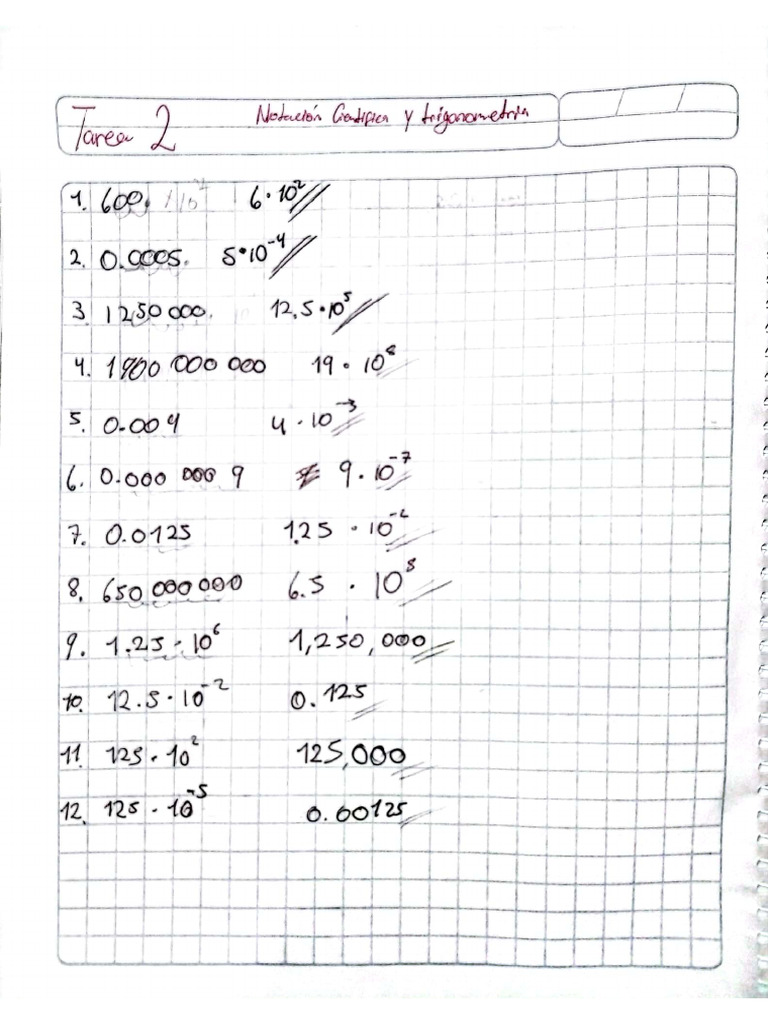 Tarea 2
Notación Científica y trigonometria
1. 600. 6 · 10²
2. 0.0005. 5 · 10⁻⁴
3. 1250 000. 12.5 · 10⁵
4. 1900 000 000 19 · 10⁸
5. 0.004 4 · 10⁻³
6. 0.000 000 9 9 · 10⁻⁷
7. 0.0125 1.25 · 10⁻²
8. 650 000 000 6.5 · 10⁸
9. 1.25 · 10⁶ 1,250,000
10. 12.5 · 10⁻² 0.125
11. 125 · 10² 125,000
12. 125 · 10⁻⁵ 0.00125